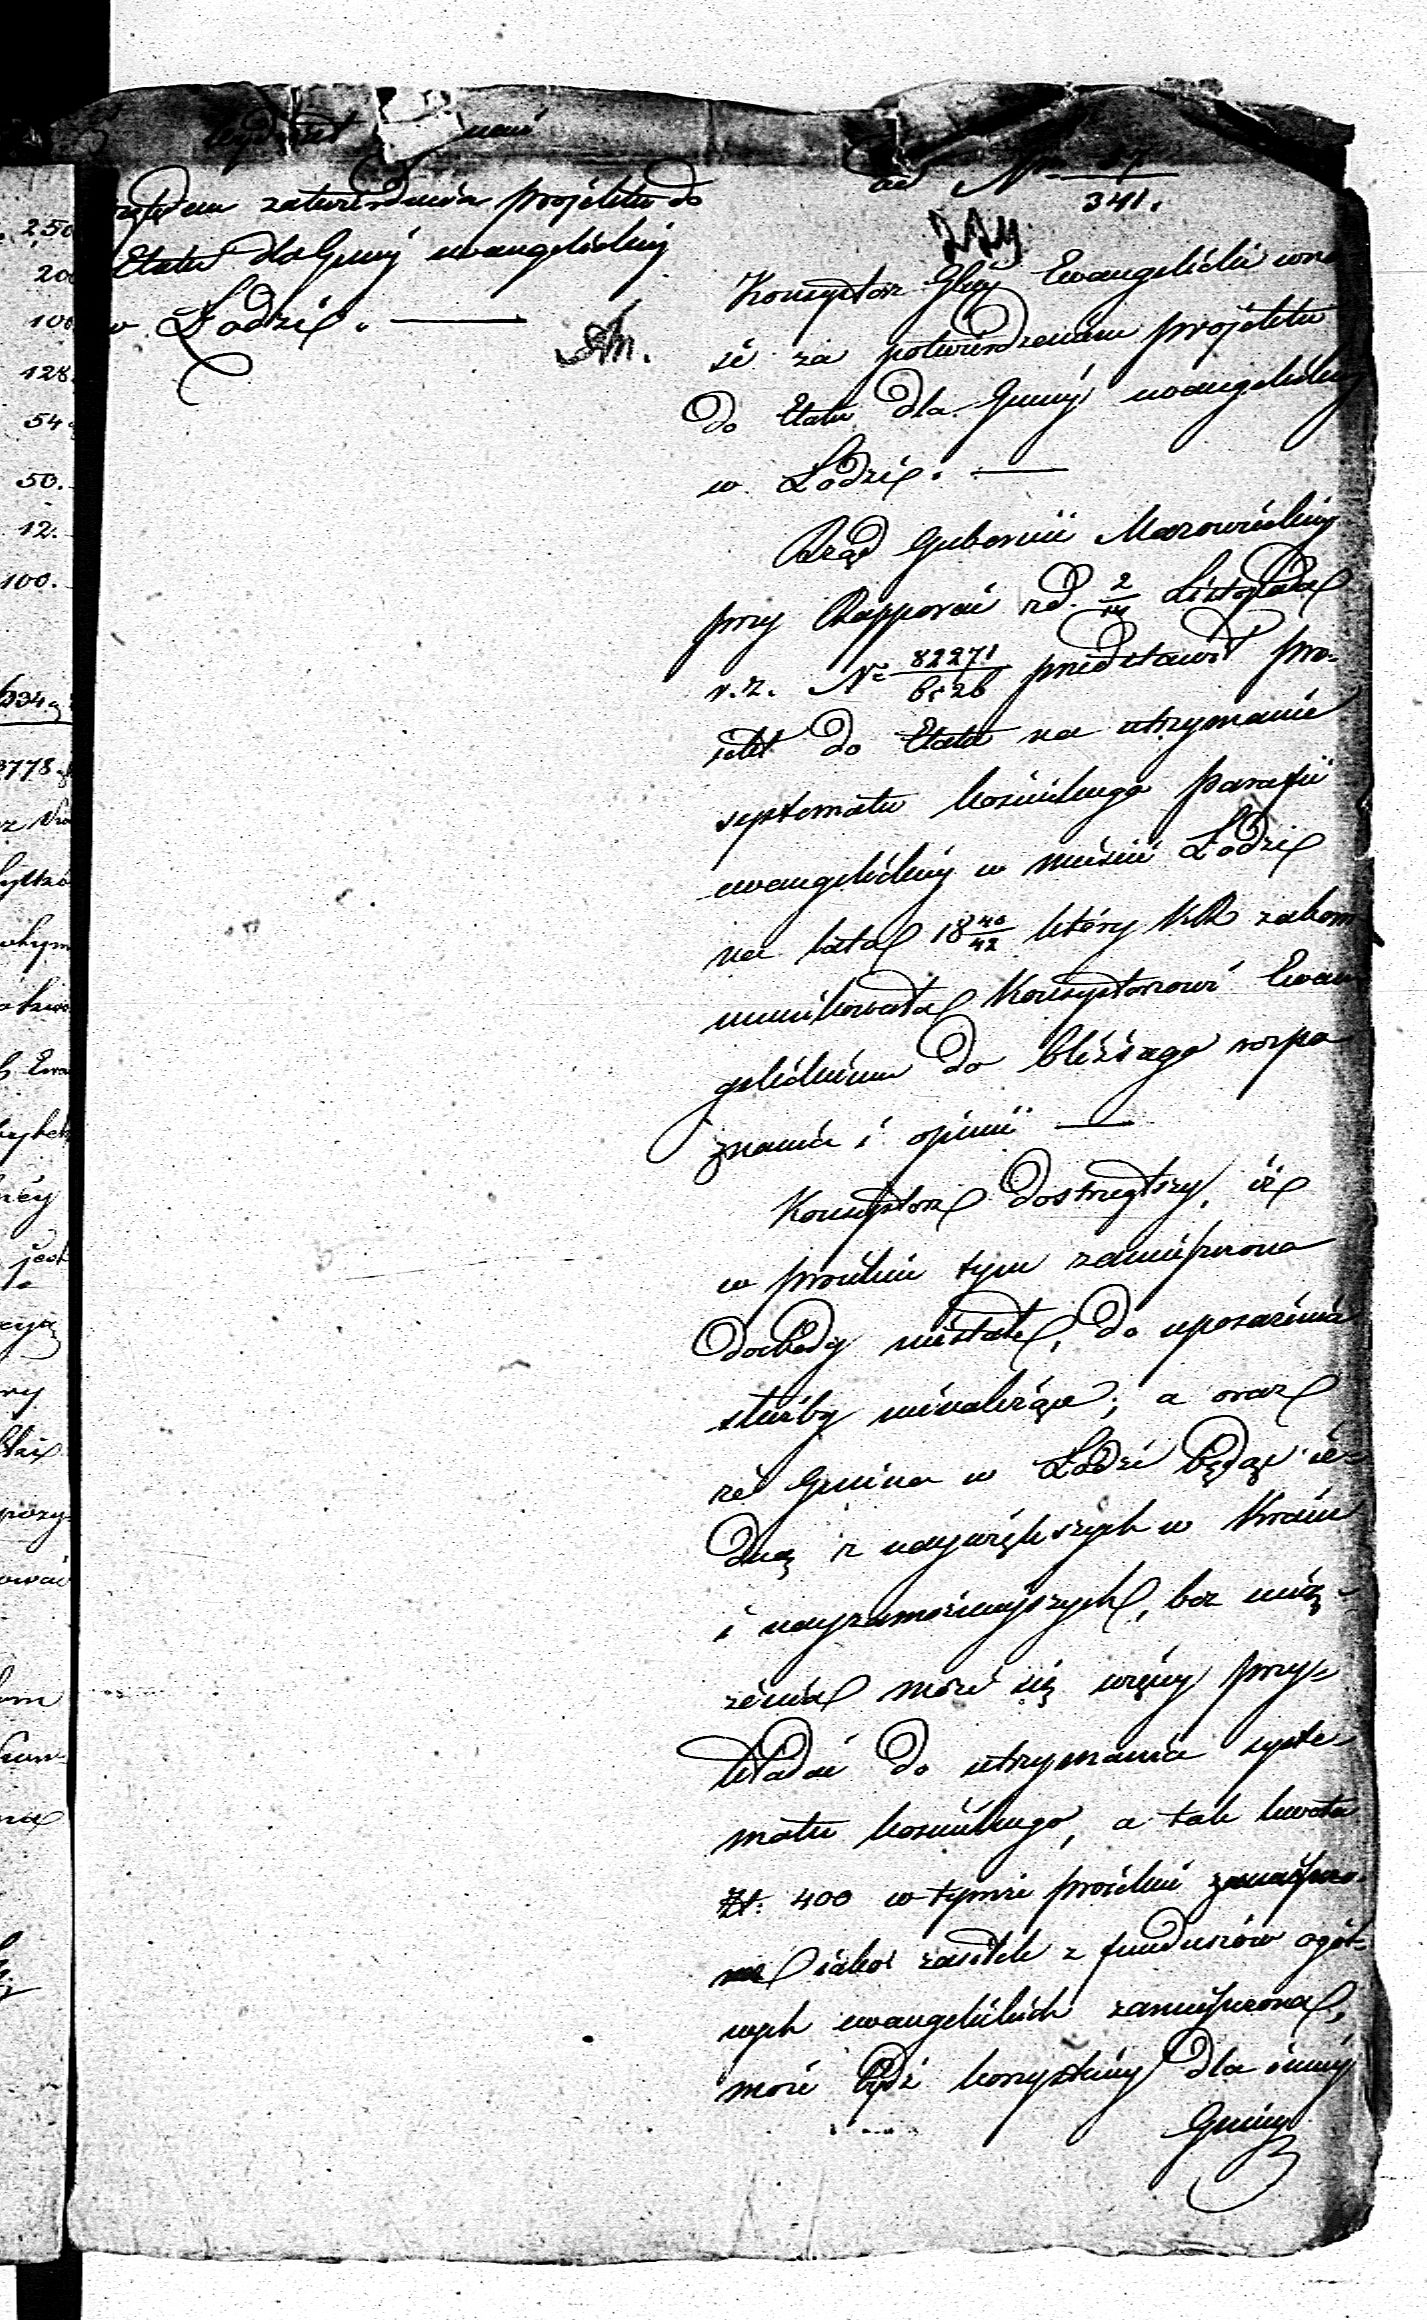 względem zatwierdzenia projektu do
Etatu dla Gminy ewangelickiej
w Łodzi. —
ad Nro 341.
Konsystorz Glny Ewangelicki wno
si za potwierdzeniem projektu
do Etatu dla Gminy ewangelickiej
w Łodzi. —
Rząd Gubernii Mazowieckiej
przy Rapporcie z d. 2/14 Listopada
r. z. No 82271/ przedstawił pro-
iekt do Etatu na utrzymanie
systematu kościelnego parafii
ewangelickiej w mieście Łodzi
na lata 18 40/42 który KR zakom
munikowała Konsystorzowi Ewan
gelickiemu do bliższego rozpo
znania i opinii —
Konsystorz dostrzegłszy, iż
w proiekcie tym zamieszczono
dochody niestałe, do uposażenia
służby nienależące; a oraz
że Gmina w Łodzi będąc ie-
dną z naywiększych w Kraiu
i nayzamożnieyszych, bez uciąż-
żenia może się więcey przy-
kładać do utrzymania syste
matu kościelnego, a tak kwota
Zł: 400 w tymże proiekcie
iako zasiłek z funduszów ogól-
nych ewangelickich zamieszczona,
może bydź korzystniey dla inney
Gminy